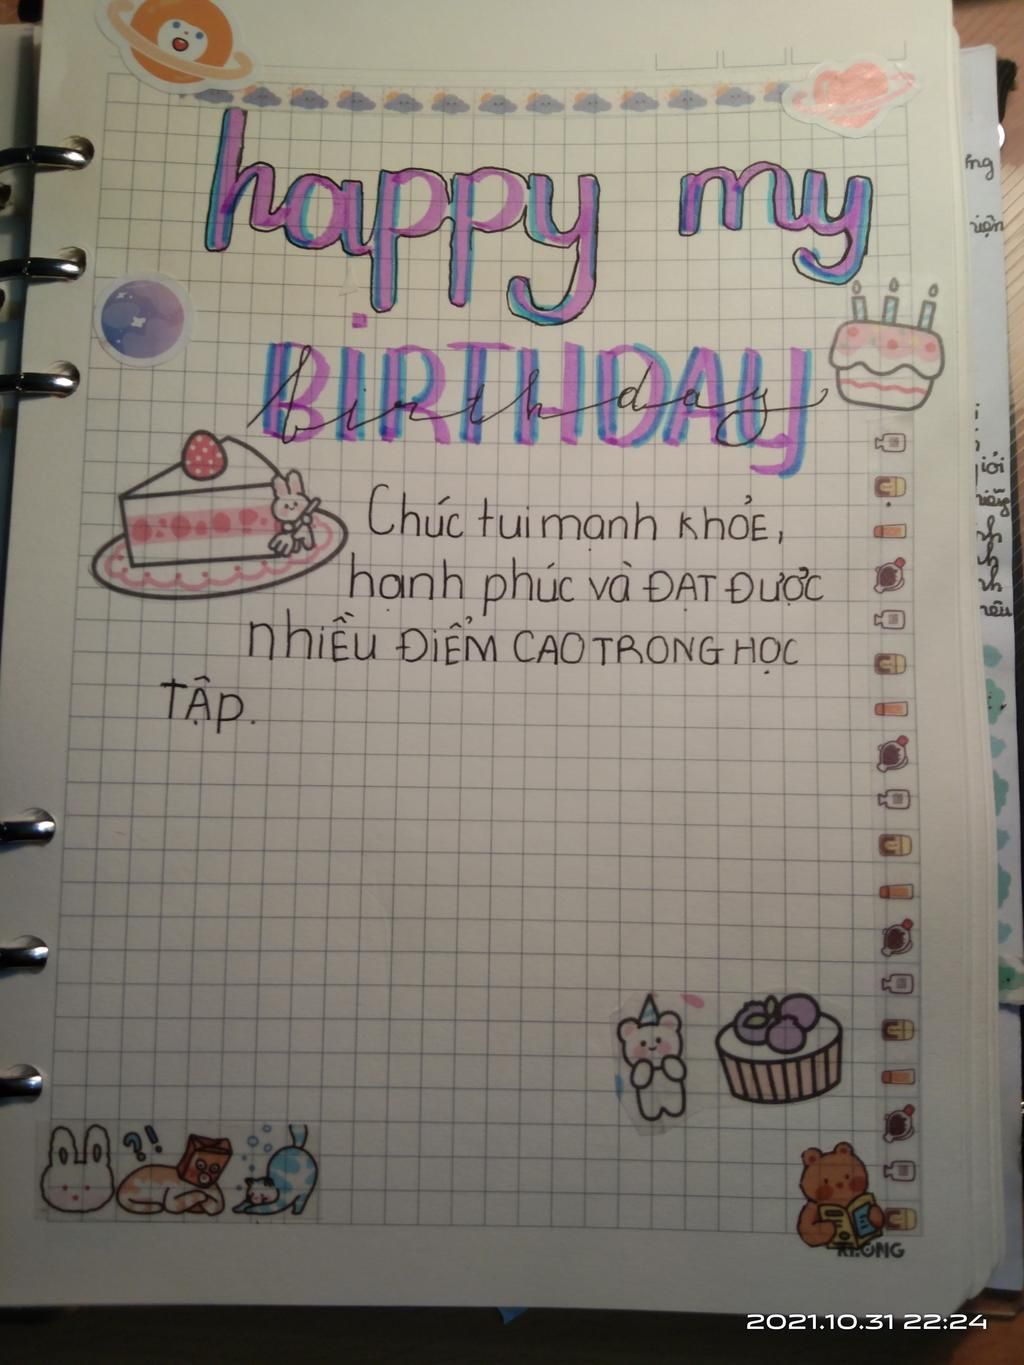 happy my
BiRTHDAY
birthday
Chúc tui mạnh KhỎE,
hạnh phúc và ĐẠT ĐƯỢC
nhiỀu ĐiỂM CAO TRONG HỌC
TẬP.
2021.10.31 22:24